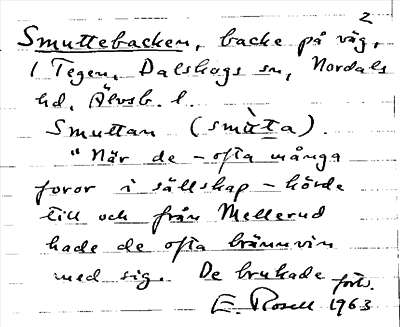 2
Smuttebacken, backe på väg,
i Tegen, Dalskogs sn, Nordals
hd, Älvsb. l.
Smuttan (smùta).
"När de - ofta många
foror i sällskap - körde
till och från Mellerud
hade de ofta brännvin
med sig. De brukade forts.
E. Rosell 1963